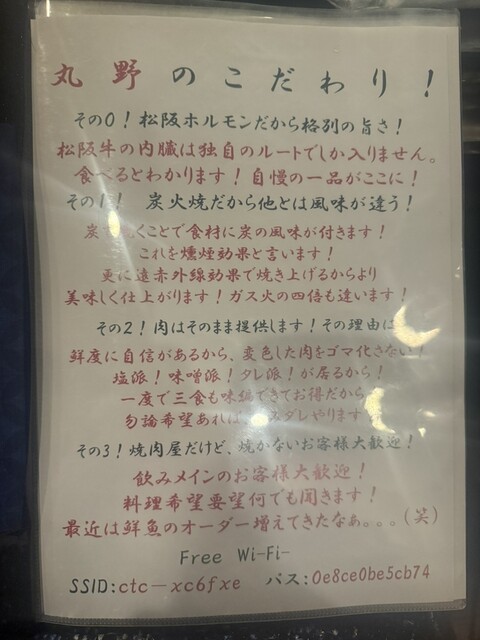 丸野のこだわり!
その0!松阪ホルモンだから格別の旨さ!
松阪牛の内臓は独自のルートでしか入りません。
食べるとわかります!自慢の一品がここに!
その1! 炭火焼だから他とは風味が違う!
炭 くことで食材に炭の風味が付きます!
これを燻煙効果と言います!
更に遠赤外線効果で焼き上げるからより
美味しく仕上がります!ガス火の四倍も違います!
その2!肉はそのまま提供します!その理由は
鮮度に自信があるから、変色した肉をゴマ化さない!
塩派!味噌派!タレ派!が居るから!
一度で三食も味 できてお得だから
勿論希望あれば、 ダレやります
その3!焼肉屋だけど、焼かないお客様大歓迎!
飲みメインのお客様大歓迎!
料理希望要望何でも聞きます!
最近は鮮魚のオーダー増えてきたなぁ。。。(笑)
Free Wi-Fi-
SSID:ctc-xc6fxe パス:0e8ce0be5cb74